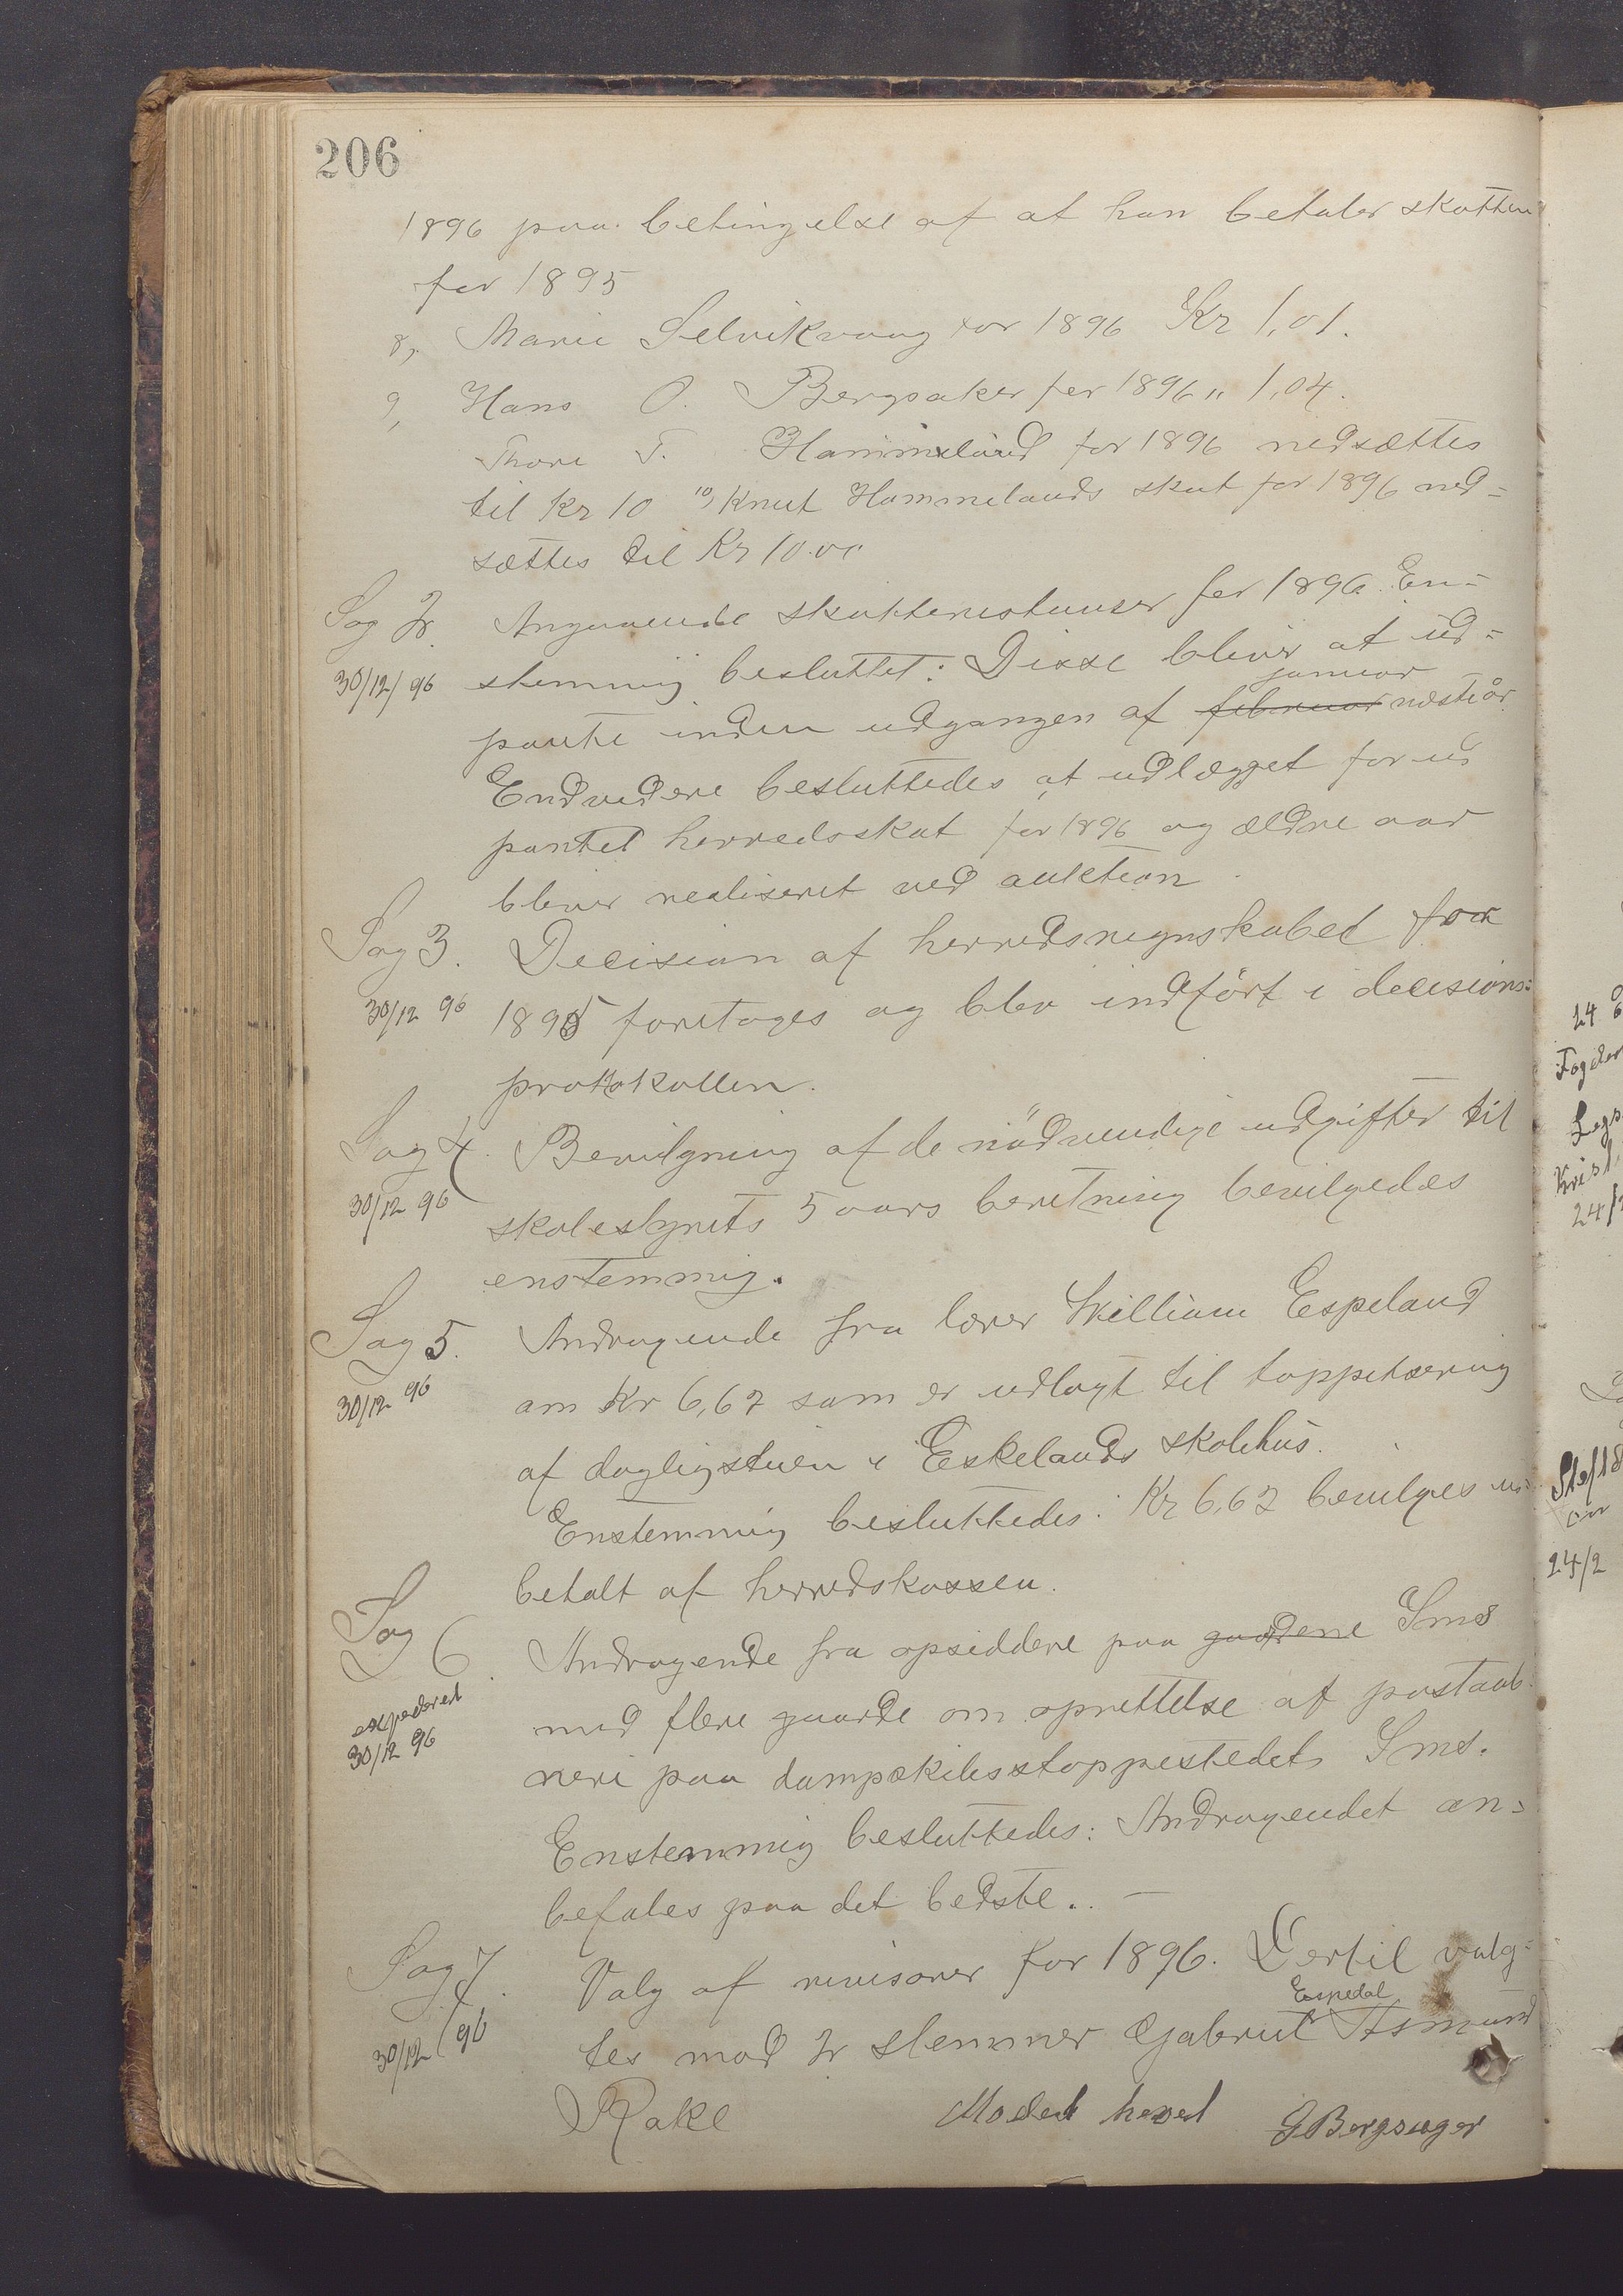 206
1896 paa betingelse af at han betaler skatten
for 1895
8, Marie Selvikvaag for 1896 Kr 1,01.
9, Hans O. Bergsaker for 1896 " 1,04.
Thore T. Hammeland for 1896 nedsættes
til Kr 10 10, Knut Hammelands skat for 1896 ned=
sættes til Kr 10.00
Sag 2. Angaaende skatterestanser for 1896. En=
30/12/96 stemmig besluttet: Disse bliver at ud=
januar
pante inden udgangen af februar næste år.
Endvidere besluttedes at udlægget for ud
pantet herredsskat for 1896 og ældre aar
bliver realiseret ved auktion.
Sag 3. Decision af herredsregnskabet for
30/12 96 1895 foretages og blev indført i decisions=
protokollen.
Sag 4. Bevilgning af de nödvendige udgifter til
30/12 96 skolestyrets 5 aars beretning bevilgedes
enstemmig.
Sag 5. Andragende fra lærer William Espeland
30/12 96 om Kr 6,62 som er udlagt til tappetsering
af dagligstuen i Eskelands skolehus.
Enstemmig besluttedes: Kr 6,62 bevilges ud
betalt af herredskassen.
Sag 6. Andragende fra opsiddere paa gaardene Ims
expederet
30/12 96
med flere gaarde om oprettelse af postaab=
neri paa dampskibsstoppestedet Ims.
Enstemmig besluttedes: Andragendet an=
befales paa det bedste. —
Sag 7. Valg af revisorer for 1896. Dertil valg=
Espedal
30/12 96 tes mod 2 stemmer Gabriel Asmund
Rake Mødet hevet GBergsager
24
Fogder
24/2